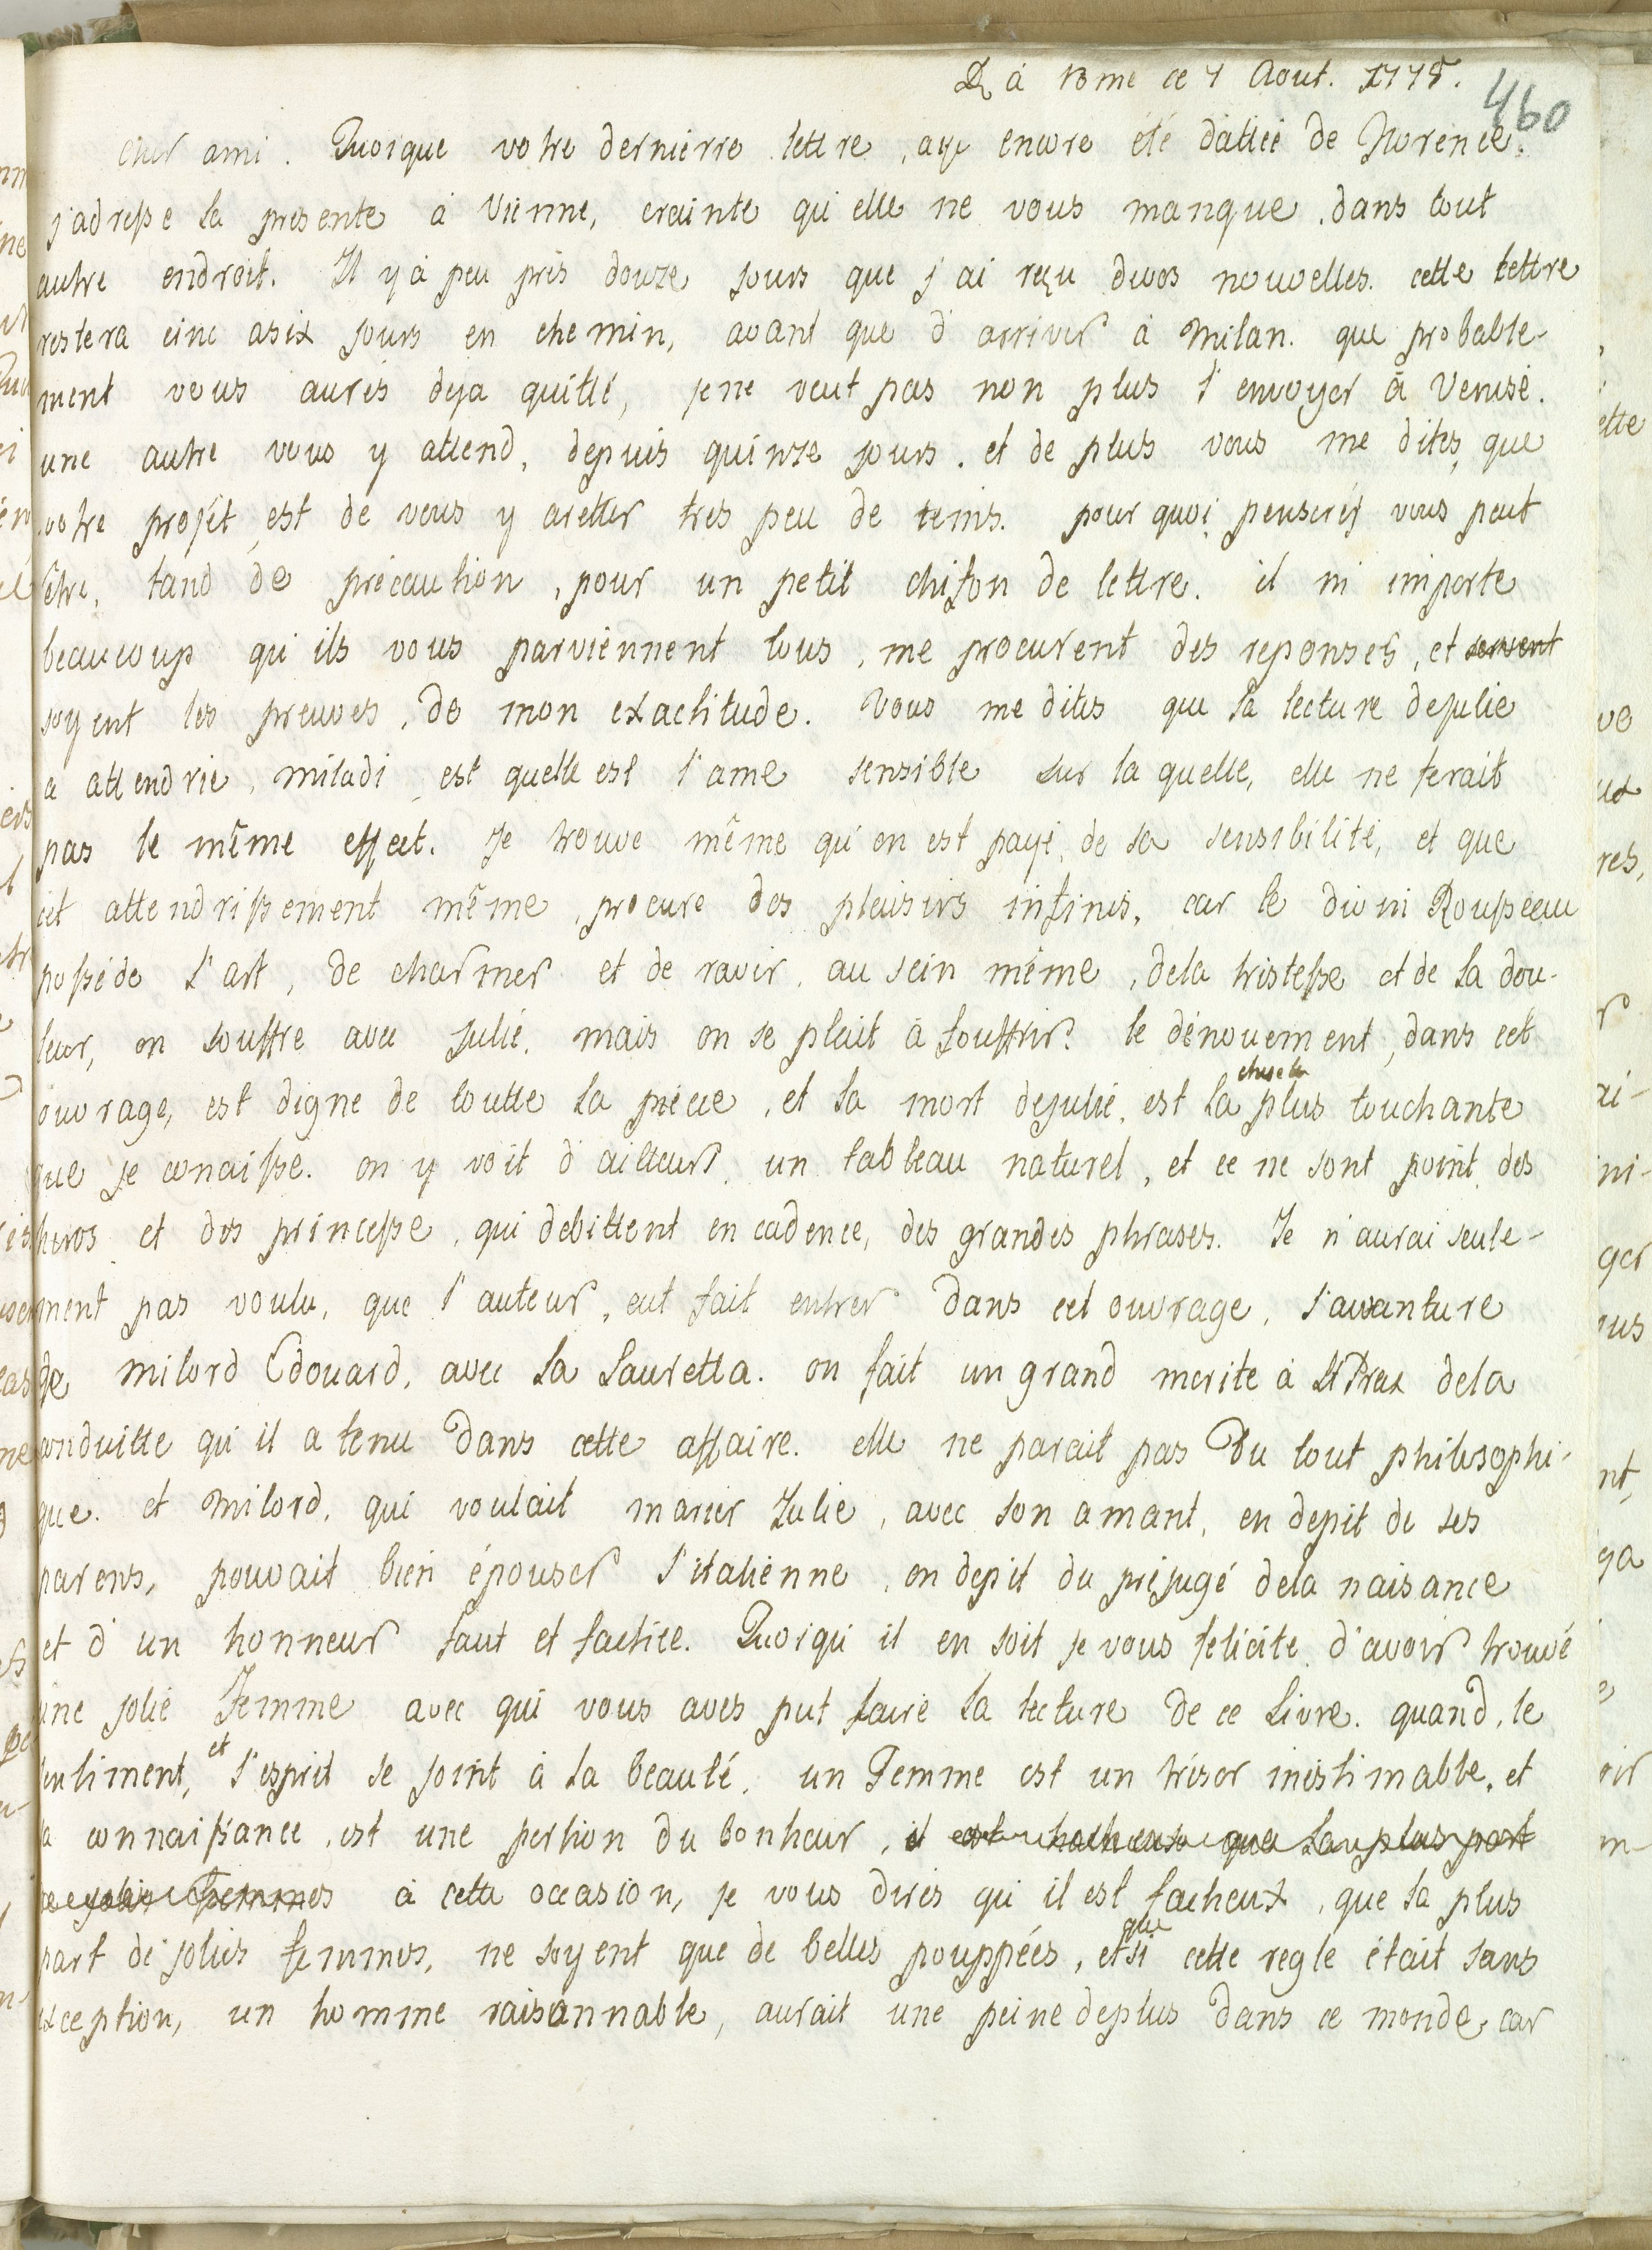 à Rome ce 7 Aout. 1775.
460
cher ami. Quoique votre dernierre lettre, aye encore été dattée de Florence.
j'adresse la presente à Vienne, crainte qu'elle ne vous manque, dans tout
autre endroit. Il y à peu près douze jours que j'ai reçu de vos nouvelles. cette lettre
restera cinc a six jours en chemin, avant que d'arriver à Milan. que probable-
ment vous aurés deja quitté, je ne veut pas non plus l'envoyer à Venise.
une autre vous y attend, depuis quinze jours. et de plus vous me dites, que
votre projét est de vous y aretter tres peu de tems. pour quoi penserés vous peut
être, tand de précaution, pour un petit chifon de lettre. il m'importe
beaucoup qu'ils vous parviennent tous, me procurent des reponses, et servent
soyent les preuves, de mon exactitude. Vous me dites que la lecture de julie
a attendrie, miladi, est quelle est l'ame sensible sur la quelle, elle ne ferait
pas le même effect. Je trouve même qu'on est payé, de sa sensibilité, et que
cet attendrissement même, procure des plaisirs infinis, car le divin Rousseau
posséde l'art, de charmer et de ravir, au sein même, de la tristesse et de la dou-
leur, on souffre avec Julie. mais on se plait à souffrir. le dénouement, dans cet
ouvrage, est digne de toutte la piéce, et la mort de julie, est la chose la plus touchante
que je conaisse. on y voit d'ailleurs, un tableau naturel, et ce ne sont point des
heros et des princesse, qui debittent en cadence, des grandes phrases. Je n'aurai seule-
ment pas voulu, que l'auteur, eut fait entrer dans cet ouvrage, l'avanture
de milord Edouard, avec la Lauretta. on fait un grand merite à St Preux de la
conduitte qu'il a tenu dans cette affaire. elle ne parait pas du tout philosophi-
que. et Milord, qui voulait marier Julie, avec son amant, en depit de ses
parens, pouvait bien épouser l'italienne, en depit du préjugé de la naisance
et d'un honneur faut et factice. Quoiqu'il en soit je vous felicite d'avoir trouvé
une jolie Femme avec qui vous aves put faire la lecture de ce Livre. quand, le
sentiment, et l'esprit se joint à la beauté, un Femme est un trésor inestimable, et
sa connaissance, est une portion du bonheur, il est facheux que la plus part
de jolies Femmes à cette occasion, je vous dirés qu'il est facheux, que la plus
part de jolies femmes, ne soyent que de belles pouppées, et que si cette regle était sans
exception, un homme raisonnable, aurait une peine de plus dans ce monde, car